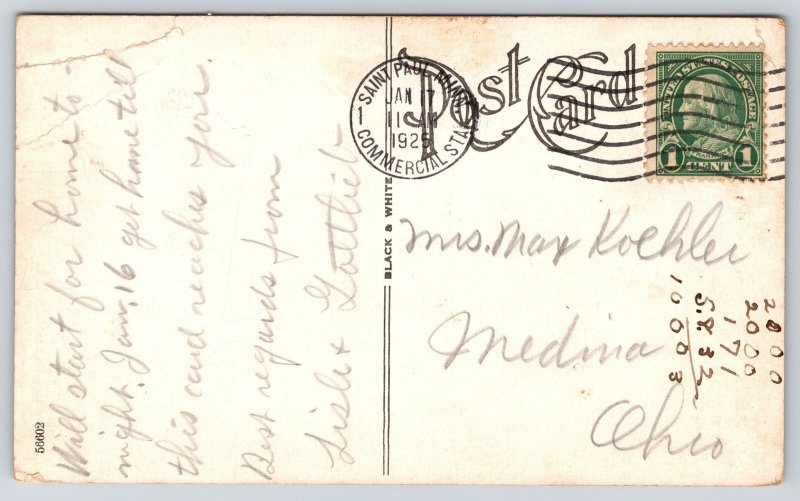 Post Card
SAINT PAUL, MINN.
JAN 17
11 AM
1925
COMMERCIAL STA.
1
UNITED STATES POSTAGE
FRANKLIN
1 CENT 1
Will start for home to-
night. Jan. 16 get home till
this card reaches you.
Best regards from
Lisle & Gottlieb
BLACK & WHITE
56602
Mrs. Max Koehler
Medina
Ohio
2000
2000
171
5.832
10003